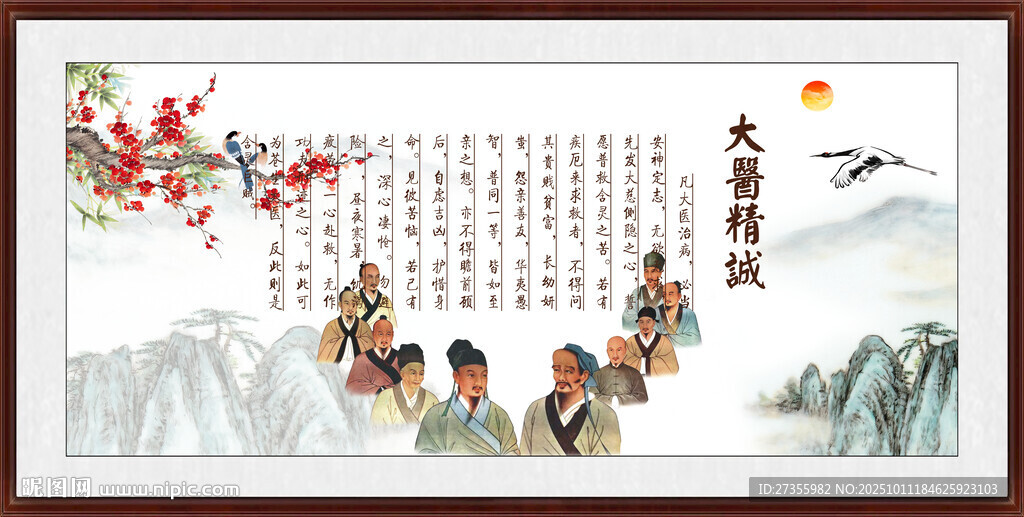 大醫精誠
凡大医治病，必当
安神定志，无欲
先发大慈恻隐之心，誓
愿普救含灵之苦。若有
疾厄来求救者，不得问
其贵贱贫富，长幼妍
蚩，怨亲善友，华夷愚
智，普同一等，皆如至
亲之想。亦不得瞻前顾
后，自虑吉凶，护惜身
命。见彼苦恼，若己有
之，深心凄怆。勿避
险，昼夜寒暑
疲劳，一心赴救，无作
功夫形迹之心。如此可
为苍生大医，反此则是
含灵巨贼。
昵图网 www.nipic.com
ID:27355982 NO:20251011184625923103